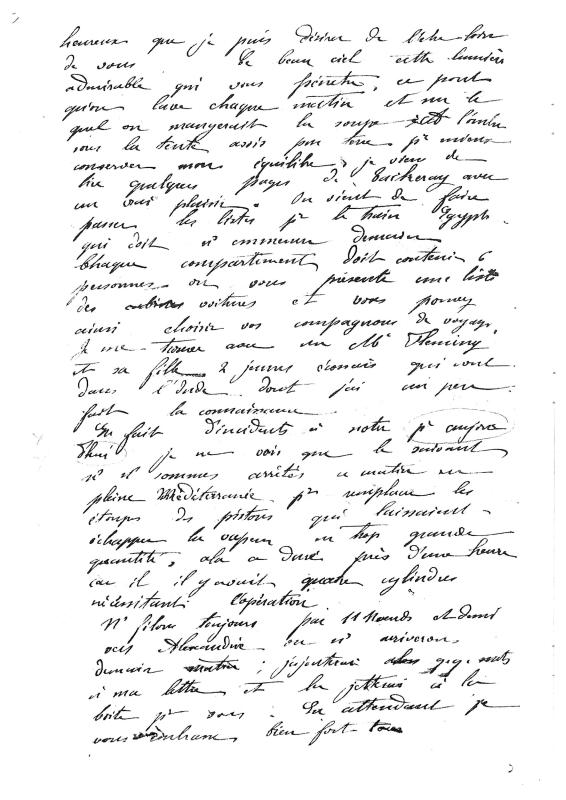 heureux que je puis désirer de l'être loin
de vous Le beau ciel cette lumière
admirable qui vous pénètre, ce pont
qu'on lave chaque matin et sur le
quel on mangerait la soupe et l'ombre
sous la tente assis par terre pr mieux
conserver mon équilibre, je viens de
lire quelques pages de Tackeray avec
un vrai plaisir. On vient de faire
passer les listes pr le train Egypt.
qui doit n' emmener demain
Chaque compartiment doit contenir 6
personnes on vous présente une liste
des voitures et vous pouvez
ainsi choisir vos compagnons de voyage.
Je me trouve avec un Mr Fleming
et sa fille 2 jeunes écossais qui vont
dans l'Inde dont j'ai un peu
fait la connaissance
En fait d'incidents à noter pr aujour
d'hui je ne vois que le suivant
ns ns sommes arrêtés ce matin en
pleine Méditerranée pr remplacer les
étoupes des pistons qui laissaient
échapper la vapeur en trop grande
quantité, cela a duré près d'une heure
car il il y avait quatre cylindres
nécessitant l'opération
Ns filons toujours par 11 Nœuds et demi
vers Alexandrie où ns arriverons
demain matin ; j'ajouterai qq. mots
à ma lettre et la jetterai à la
boîte pr vous. En attendant je
vous embrasse bien fort